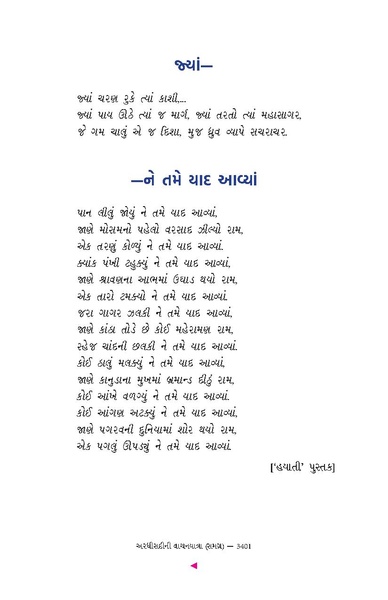 જ્યાં—
જ્યાં ચરણ રુકે ત્યાં કાશી,...
જ્યાં પાય ઊઠે ત્યાં જ માર્ગ, જ્યાં તરતો ત્યાં મહાસાગર,
જે ગમ ચાલું એ જ દિશા, મુજ ધ્રુવ વ્યાપે સચરાચર.
—ને તમે યાદ આવ્યાં
પાન લીલું જોયું ને તમે યાદ આવ્યાં,
જાણે મોસમનો પહેલો વરસાદ ઝીલ્યો રામ,
એક તરણું કોળ્યું ને તમે યાદ આવ્યાં.
ક્યાંક પંખી ટહુક્યું ને તમે યાદ આવ્યાં,
જાણે શ્રાવણના આભમાં ઉઘાડ થયો રામ,
એક તારો ટમક્યો ને તમે યાદ આવ્યાં.
જરા ગાગર ઝલકી ને તમે યાદ આવ્યાં,
જાણે કાંઠા તોડે છે કોઈ મહેરામણ રામ,
સ્હેજ ચાંદની છલકી ને તમે યાદ આવ્યાં.
કોઈ ઠાલું મલક્યું ને તમે યાદ આવ્યાં,
જાણે કાનુડાના મુખમાં બ્રમાન્ડ દીઠું રામ,
કોઈ આંખે વળગ્યું ને તમે યાદ આવ્યાં.
કોઈ આંગણ અટક્યું ને તમે યાદ આવ્યાં,
જાણે પગરવની દુનિયામાં શોર થયો રામ,
એક પગલું ઊપડ્યું ને તમે યાદ આવ્યાં.
[‘હયાતી’ પુસ્તક]
અરધીસદીની વાચનયાત્રા (સમગ્ર) — 3401